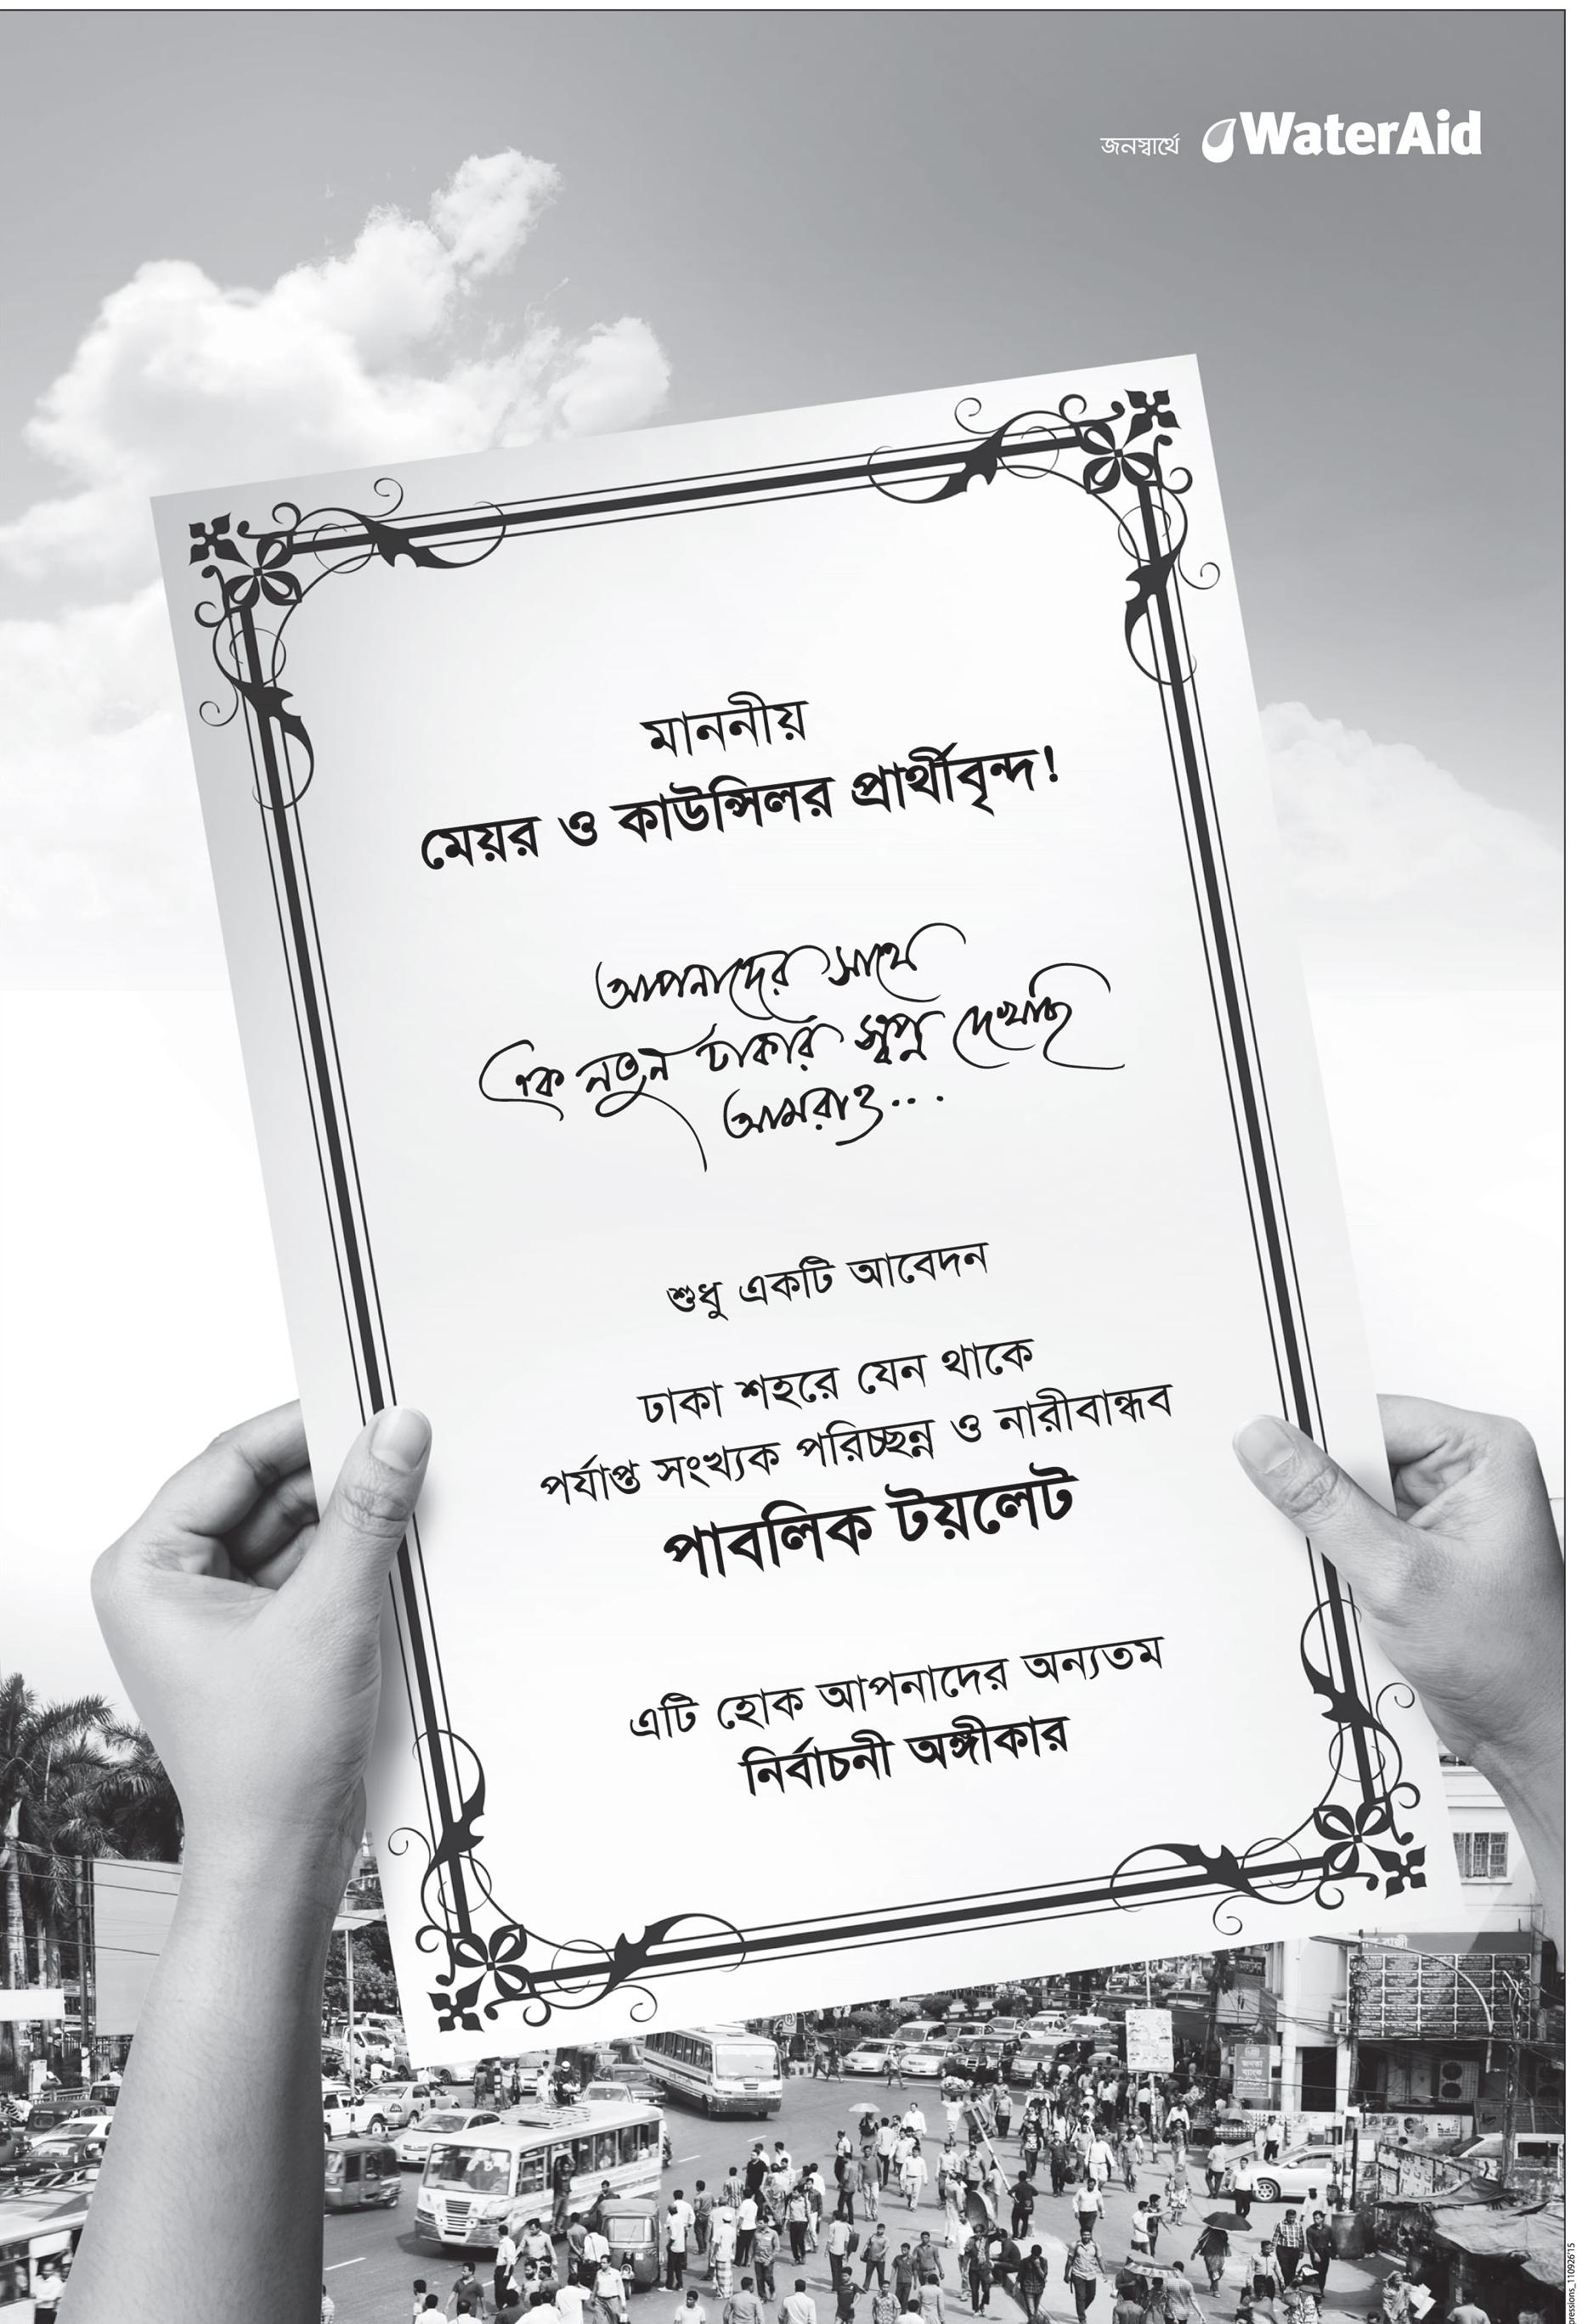 জনস্বার্থে WaterAid
মাননীয়
মেয়র ও কাউন্সিলর প্রার্থীবৃন্দ!
আপনাদের সাথে
এক নতুন ঢাকার স্বপ্ন দেখছি
আমরাও...
শুধু একটি আবেদন
ঢাকা শহরে যেন থাকে
পর্যাপ্ত সংখ্যক পরিচ্ছন্ন ও নারীবান্ধব
পাবলিক টয়লেট
এটি হোক আপনাদের অন্যতম
নির্বাচনী অঙ্গীকার
pressions_110926'15